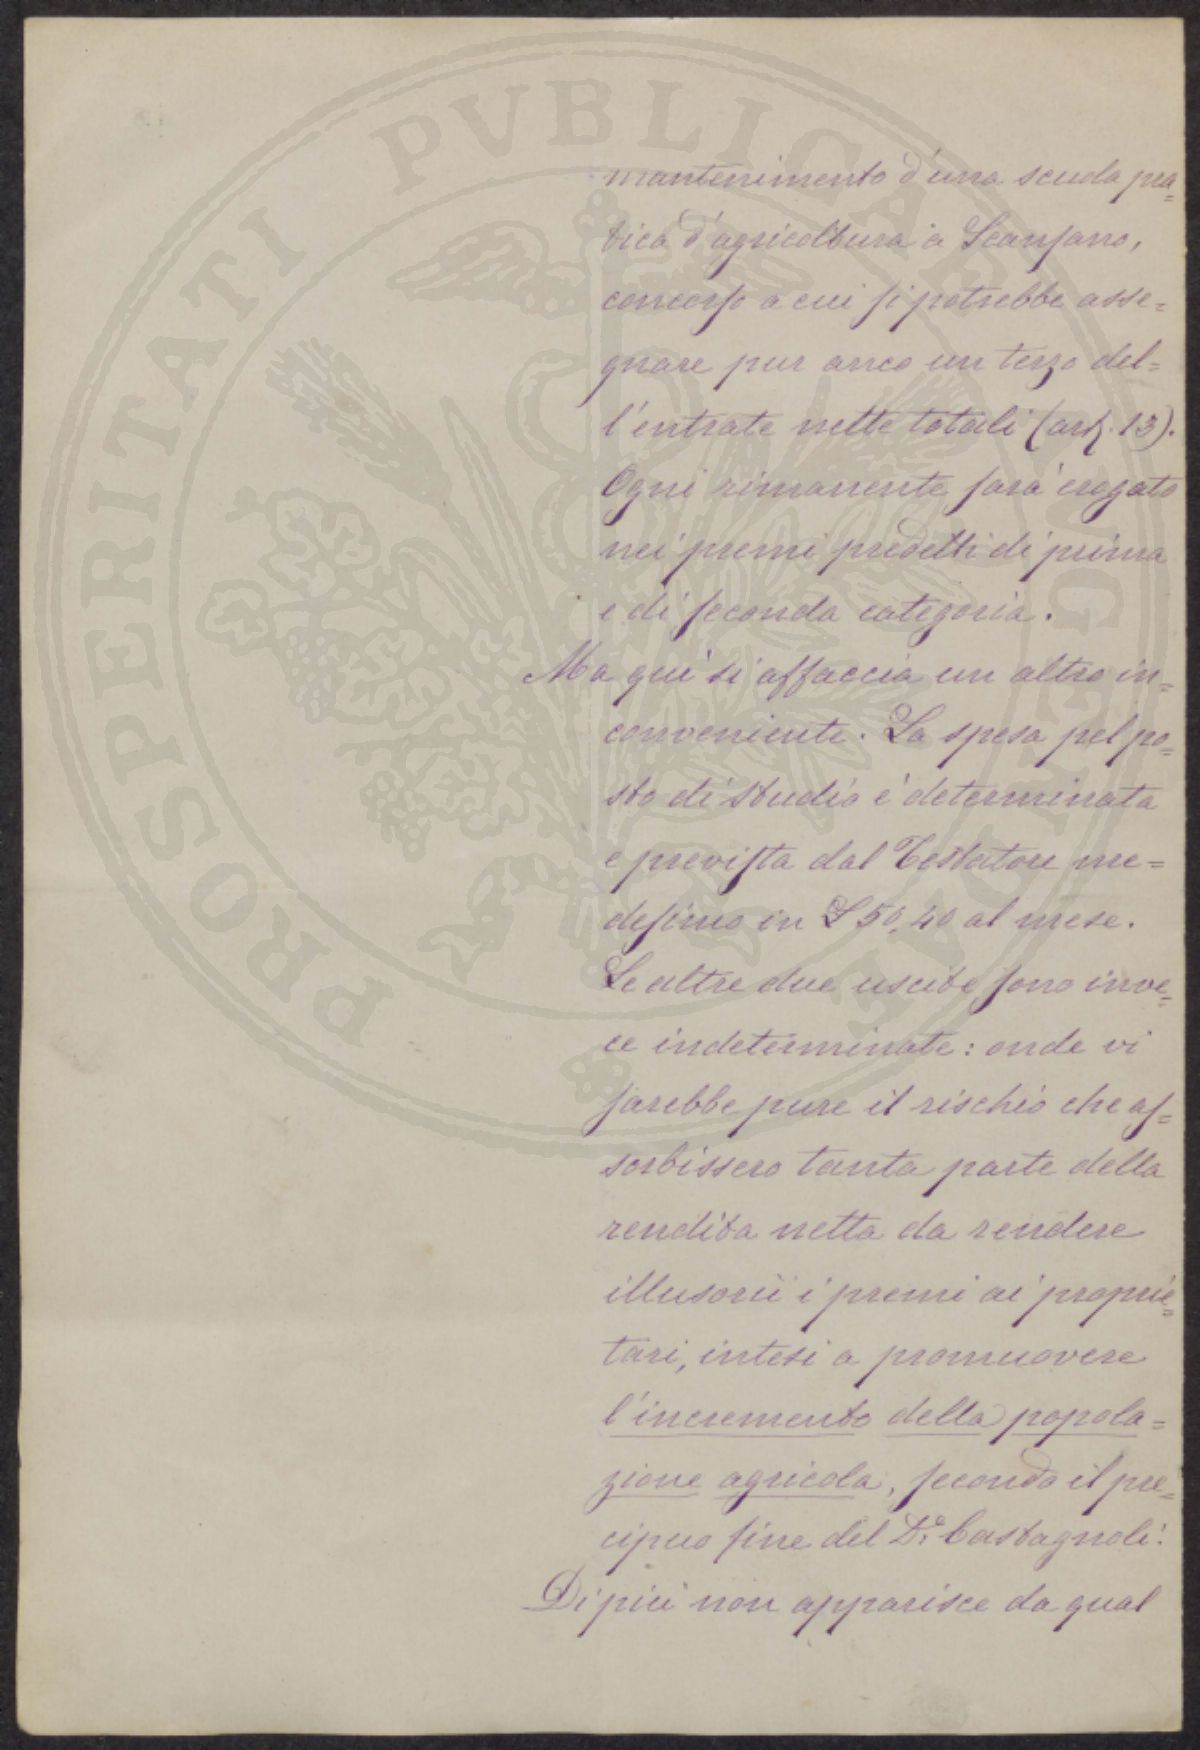 mantenimento d'una scuola pra=
tica d'agricoltura a Scansano,
concorso a cui si potrebbe asse=
gnare pur anco un terzo del=
l'entrate nette totali (art. 13).
Ogni rimanente sarà erogato
nei premi predetti di prima
e di seconda categoria.
Ma qui si affaccia un altro in=
conveniente. La spesa pel po=
sto di studio è determinata
e prevista dal Testatore me=
desimo in L 50,40 al mese.
Le altre due uscite sono inve=
ce indeterminate: onde vi
sarebbe pure il rischio che as=
sorbissero tanta parte della
rendita netta da rendere
illusorii i premi ai proprie=
tari, intesi a promuovere
l'incremento della popola=
zione agricola, secondo il pre=
cipuo fine del Dr. Castagnoli.
Di più non apparisce da qual
PROSPERITATI PVBLICAE AVGENDAE